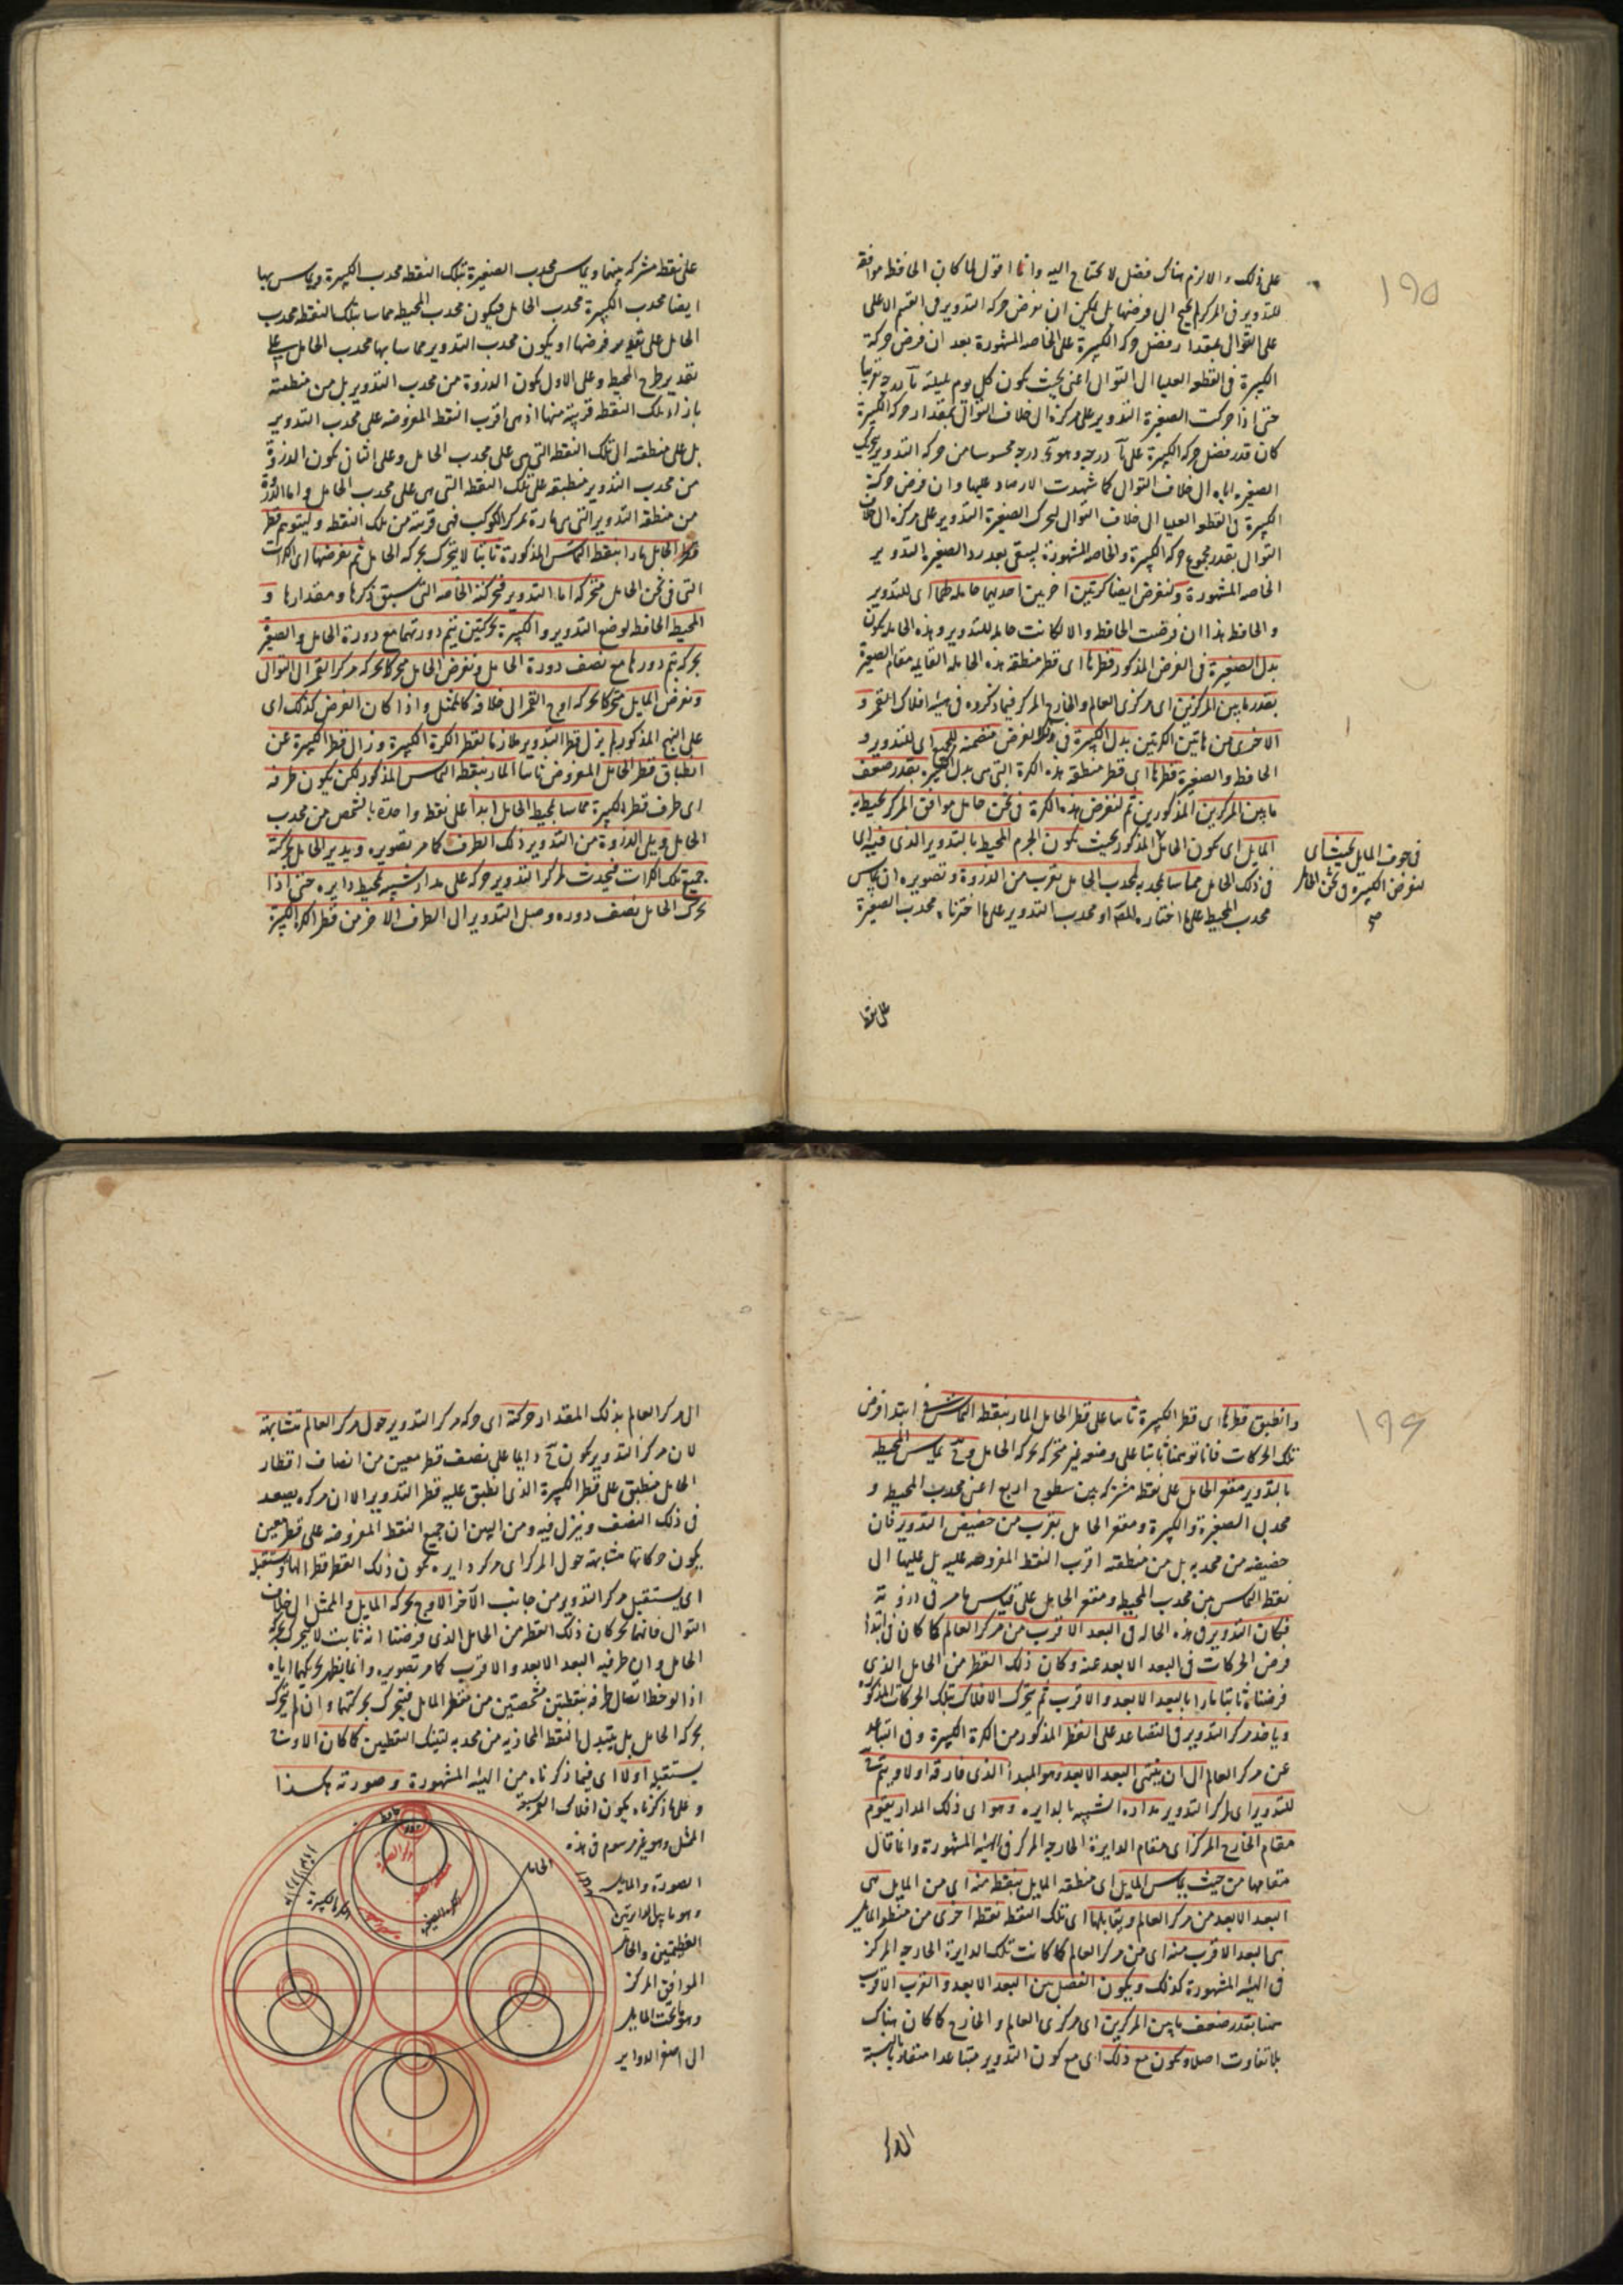 ١٩٥
على ذلك والا لزم هناك فضل لا يحتاج اليه وانا اقول لما كان الحافظ موافقة
للتدوير فى المركز لم يحتج الى فرضها بل يكفى ان نفرض حركة التدوير فى القسم الاعلى
على التوالى بمقدار فضل حركة الكبيرة على الخاصة المشهورة بعد ان فرض حركة
الكبيرة فى القطعة العليا الى التوالى اعنى بحيث يكون كل يوم بليلته درجة تقريبا
حتى اذا حركت الصغيرة التدوير على مركزه الى خلاف التوالى بمقدار حركة الكبيرة
كان قدر فضل حركة الكبيرة على درجة وهو درجة محسوسا من حركة التدوير بتحريك
الصغيرة اياه الى خلاف التوالى كما شهدت الارصاد عليها وان فرض حركة
الكبيرة فى القطعة العليا الى خلاف التوالى لتحرك الصغيرة التدوير على مركزه الى خلاف
التوالى بقدر مجموع حركة الكبيرة والخاصة المشهورة ليبقى بعد رد الصغيرة التدوير
الخاصة المشهورة ولنفرض ايضا كرتين اخريين احديهما حاملة لهما اى للتدوير
والحافظ هذا ان فرضت الحافظ والا لكانت حاملة للتدوير وهذه الحاملة يكون
بدل الصغيرة فى الفرض المذكور قطرها اى قطر منطقة هذه الحاملة القايمة مقام الصغيرة
بقدر ما بين المركزين اى مركزى العالم والخارج المركز فيما ذكروه فى هيئة افلاك القمر و
الاخرى من هاتين الكرتين بدل الكبيرة فى ذلك الفرض متضمنة للجميع اى للتدوير و
الحافظ والصغيرة قطرها اى قطر منطقة هذه الكرة التى هى بدل الكبيرة بقدر ضعف
ما بين المركزين المذكورين ثم لنفرض هذه الكرة فى ثخن حامل موافق المركز يحيط به
المايل اى يكون الحامل المذكور بحيث يكون الجرم المحيط بالتدوير الذى فيه اى
فى ذلك الحامل مماسا لمحدبه لمحدب الحامل بقرب من الذروة وتصويره ان يماس
محدب المحيط على ما اختاره المصنف او محدب التدوير على ما اخترناه محدب الصغيرة
فى جوف المايل بحيث اى
لنفرض الكبيرة فى ثخن الحامل
صح
على نقطة
على نقطة مشتركة بينهما ويماس محدب الصغيرة بتلك النقطة محدب الكبيرة ويماس بها
ايضا محدب الكبيرة محدب الحامل فيكون محدب المحيط مماسا بتلك النقطة محدب
الحامل على تقدير فرضها او يكون محدب التدوير مماسا بها محدب الحامل على
تقدير طرح المحيط وعلى الاول يكون الذروة من محدب التدوير بل من منطقته
بازاء تلك النقطة قريبة منها اذ هى اقرب النقط المفروضة على محدب التدوير
بل على منطقته الى تلك النقطة التى هى على محدب الحامل وعلى الثانى يكون الذروة
من محدب التدوير منطبقة على تلك النقطة التى هى على محدب الحامل واما الذروة
من منطقة التدوير التى هى مارة بمركز الكوكب فهى قريبة من تلك النقطة وليتوهم قطر
قطر الحامل مارا بنقطة التماس المذكورة ثابتا لا يتحرك بحركة الحامل ثم نفرضها اى الكرات
التى فى ثخن الحامل متحركة اما التدوير فحركته الخاصة التى سبق ذكرها ومقدارها و
المحيط الحافظ لوضع التدوير والكبيرة بحركتين يتم دورتهما مع دورة الحامل والصغيرة
بحركة يتم دورها مع نصف دورة الحامل ونفرض الحامل متحركا بحركة مركز القمر الى التوالى
ونفرض المايل متحركا بحركة اوج القمر الى خلافه كالممثل واذا كان الفرض كذلك اى
على النهج المذكور لم يزل قطر التدوير ملازما لقطر الكرة الكبيرة وزال قطر الكبيرة عن
انطباق قطر الحامل المفروض ثابتا المار بنقطة التماس المذكور لكن يكون طرفه
اى طرف قطر الكبيرة مماسا لمحيط الحامل ابدا على نقطة واحدة بالشخص من محدب
الحامل ويلى الذروة من التدوير ذلك الطرف كما مر تصويره ويدير الحامل بحركته
جميع تلك الكرات فيحدث لمركز التدوير حركة على مدار شبيه بمحيط دايرة حتى اذا
تحرك الحامل نصف دورة وصل التدوير الى الطرف الاخر من قطر الكرة الكبيرة
١٩٦
وانطبق قطرها اى قطر الكبيرة ثانيا على قطر الحامل المار بنقطة التماس فى ابتداء فرض
تلك الحركات فانا توهمناه ثابتا على وضعه غير متحركة بحركة الحامل وح يماس المحيط
بالتدوير مقعر الحامل على نقطة مشتركة بين سطوح اربع اعنى محدب المحيط و
محدبى الصغيرة والكبيرة ومقعر الحامل بقرب من حضيض التدوير فان
حضيضه من محدبه بل من منطقته اقرب النقط المفروضة عليه بل عليها الى
نقطة التماس بين محدب المحيط ومقعر الحامل على قياس ما مر فى ذروته
فكان التدوير فى هذه الحالة فى البعد الاقرب من مركز العالم كما كان فى ابتداء
فرض الحركات فى البعد الابعد عنه وكان ذلك القطر من الحامل الذى
فرضناه ثابتا مارا بالبعد الابعد والاقرب ثم يتحرك الافلاك بتلك الحركات المذكورة
وياخذ مركز التدوير فى التصاعد على القطر المذكور من الكرة الكبيرة وفى التباعد
عن مركز العالم الى ان ينتهى البعد الابعد وهو المبدا الذى فارقه اولا ويتم
للتدوير اى لمركز التدوير مداره الشبيه بالدايرة وهو اى ذلك المدار يقوم
مقام الخارج المركز اى مقام الدايرة الخارجة المركز فى الهيئة المشهورة وانما قال
مقامها من حيث يماس المايل اى منطقة المايل بنقطة منه اى من المايل هى
البعد الابعد من مركز العالم ويقابلها اى تلك النقطة نقطة اخرى من منطقة المايل
هى البعد الاقرب منه اى من مركز العالم كما كانت تلك الدايرة الخارجة المركز
فى الهيئة المشهورة كذلك ويكون الفصل بين البعد الابعد والقرب الاقرب
ههنا بقدر ضعف ما بين المركزين اى مركزى العالم والخارج كما كان هناك
بلا تفاوت اصلا ويكون مع ذلك اى مع كون التدوير متباعدا متقاربا بالنسبة
الى مركز
الى مركز العالم بذلك المقدار حركته اى حركة مركز التدوير حول مركز العالم متشابهة
لان مركز التدوير يكون ح دايما على نصف قطر معين من انصاف اقطار
الحامل منطبق على قطر الكبيرة الذى انطبق عليه قطر التدوير الا ان مركزه يصعد
فى ذلك النصف وينزل فيه ومن البين ان جميع النقط المفروضة على قطر معين
يكون حركاتها متشابهة حول المركز اى مركز دايرة يكون ذلك القطر قطرا لها ويستقبله
اى يستقبل مركز التدوير من جانب الآخر الاوج بحركة المايل والممثل الى خلاف
التوالى فانهما يحركان ذلك القطر من الحامل الذى فرضنا انه ثابت لا يتحرك بحركة
الحامل وان طرفيه البعد الابعد والاقرب كما مر تصويره وانما يظهر تحريكهما اياه
اذا لوحظ اتصال طرفيه بنقطتين مشخصتين من منطقة المايل فيتحرك بحركتهما وان لم يتحرك
بحركة الحامل بل يتبدل بالنقط المحاذية من محدبه لتينك النقطتين كما كان الاوج
يستقبله اولا اى فيما ذكرناه من الهيئة المشهورة وصورته هكذا
وعلى ما ذكرناه يكون افلاك القمر سبعة
الممثل وهو غير مرسوم فى هذه
الصورة والمايل
وهو ما بين الدايرتين
العظيمتين والحامل
الموافق المركز
وهو ما تحت المايل
الى اصغر الدواير
حافظ
الحامل
الكرة الكبيرة
الكرة الصغيرة